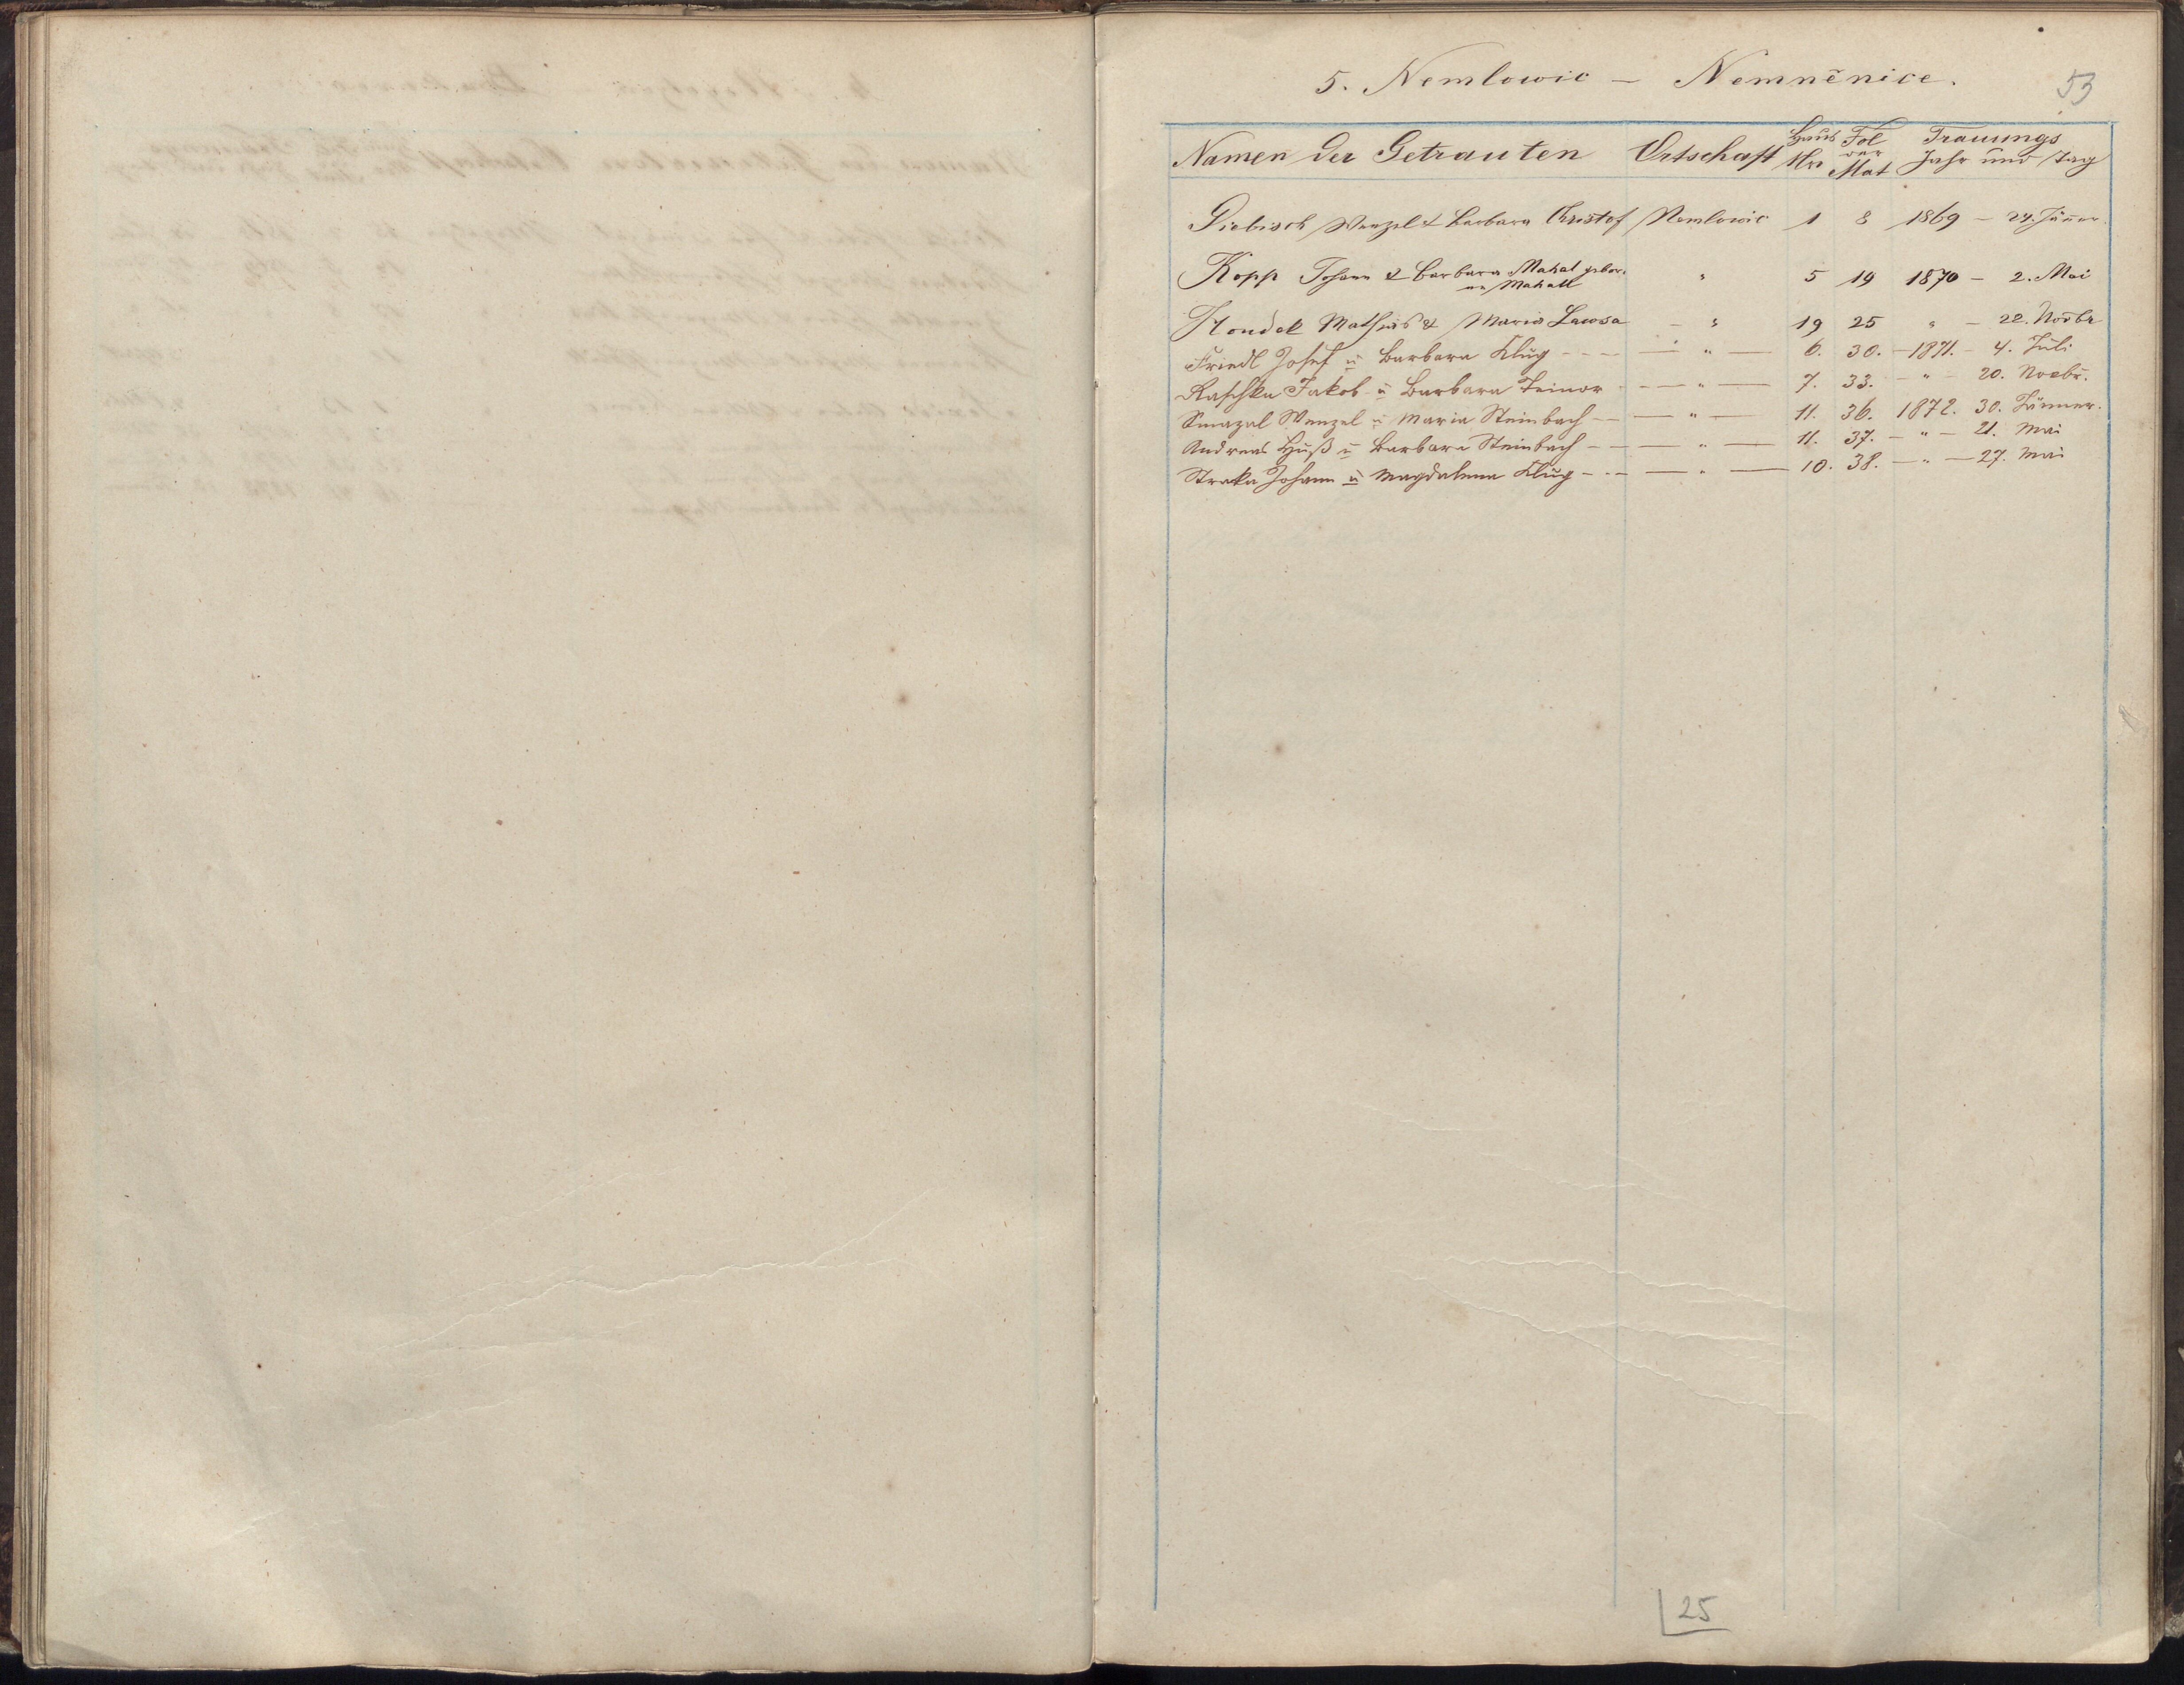 5. Nemlowic — Nemněnice.
53
Namen der Getrauten Ortschaft Haus Nro Fol der Mat Trauungs Jahr und Tag
Giebisch Wenzel & Barbara Christof Nemlowic 1 8 1869 — 24. Jänner
Kopp Johann & Barbara Mahal gebor. " 5 19 1870 — 2. Mai
Mahall
Houdek Mathias & Maria Lawosa — " 19 25 " — 22. Novbr
Friedl Josef u Barbara Klug — " — 6. 30. — 1871. — 4. Juli
Raschka Jakob u Barbara — " — 7. 33. — " — 20. Novbr.
Smazal Wenzel u Maria Steinbach — " — 11. 36. 1872. 30. Jänner.
Andreas Huß u Barbara Steinbach — " — 11. 37. — " — 21. Mai
Straka Johann u Magdalena Klug — " — 10. 38. — " — 27. Mai
25